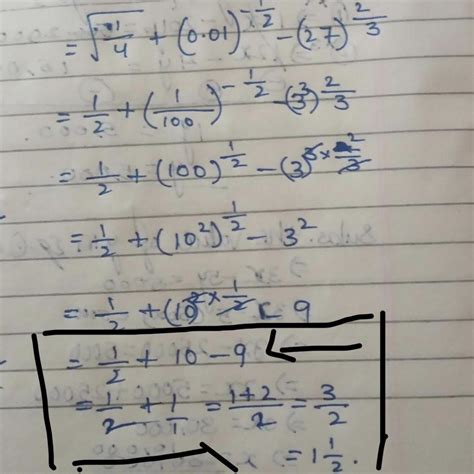 = √(1/4) + (0.01)^(-1/2) - (27)^(2/3)
= 1/2 + (1/100)^(-1/2) - (3^3)^(2/3)
= 1/2 + (100)^(1/2) - (3)^(3 × 2/3)
= 1/2 + (10^2)^(1/2) - 3^2
= 1/2 + (10)^(2 × 1/2) - 9
= 1/2 + 10 - 9
= 1/2 + 1/1 = (1+2)/2 = 3/2
= 1 1/2.